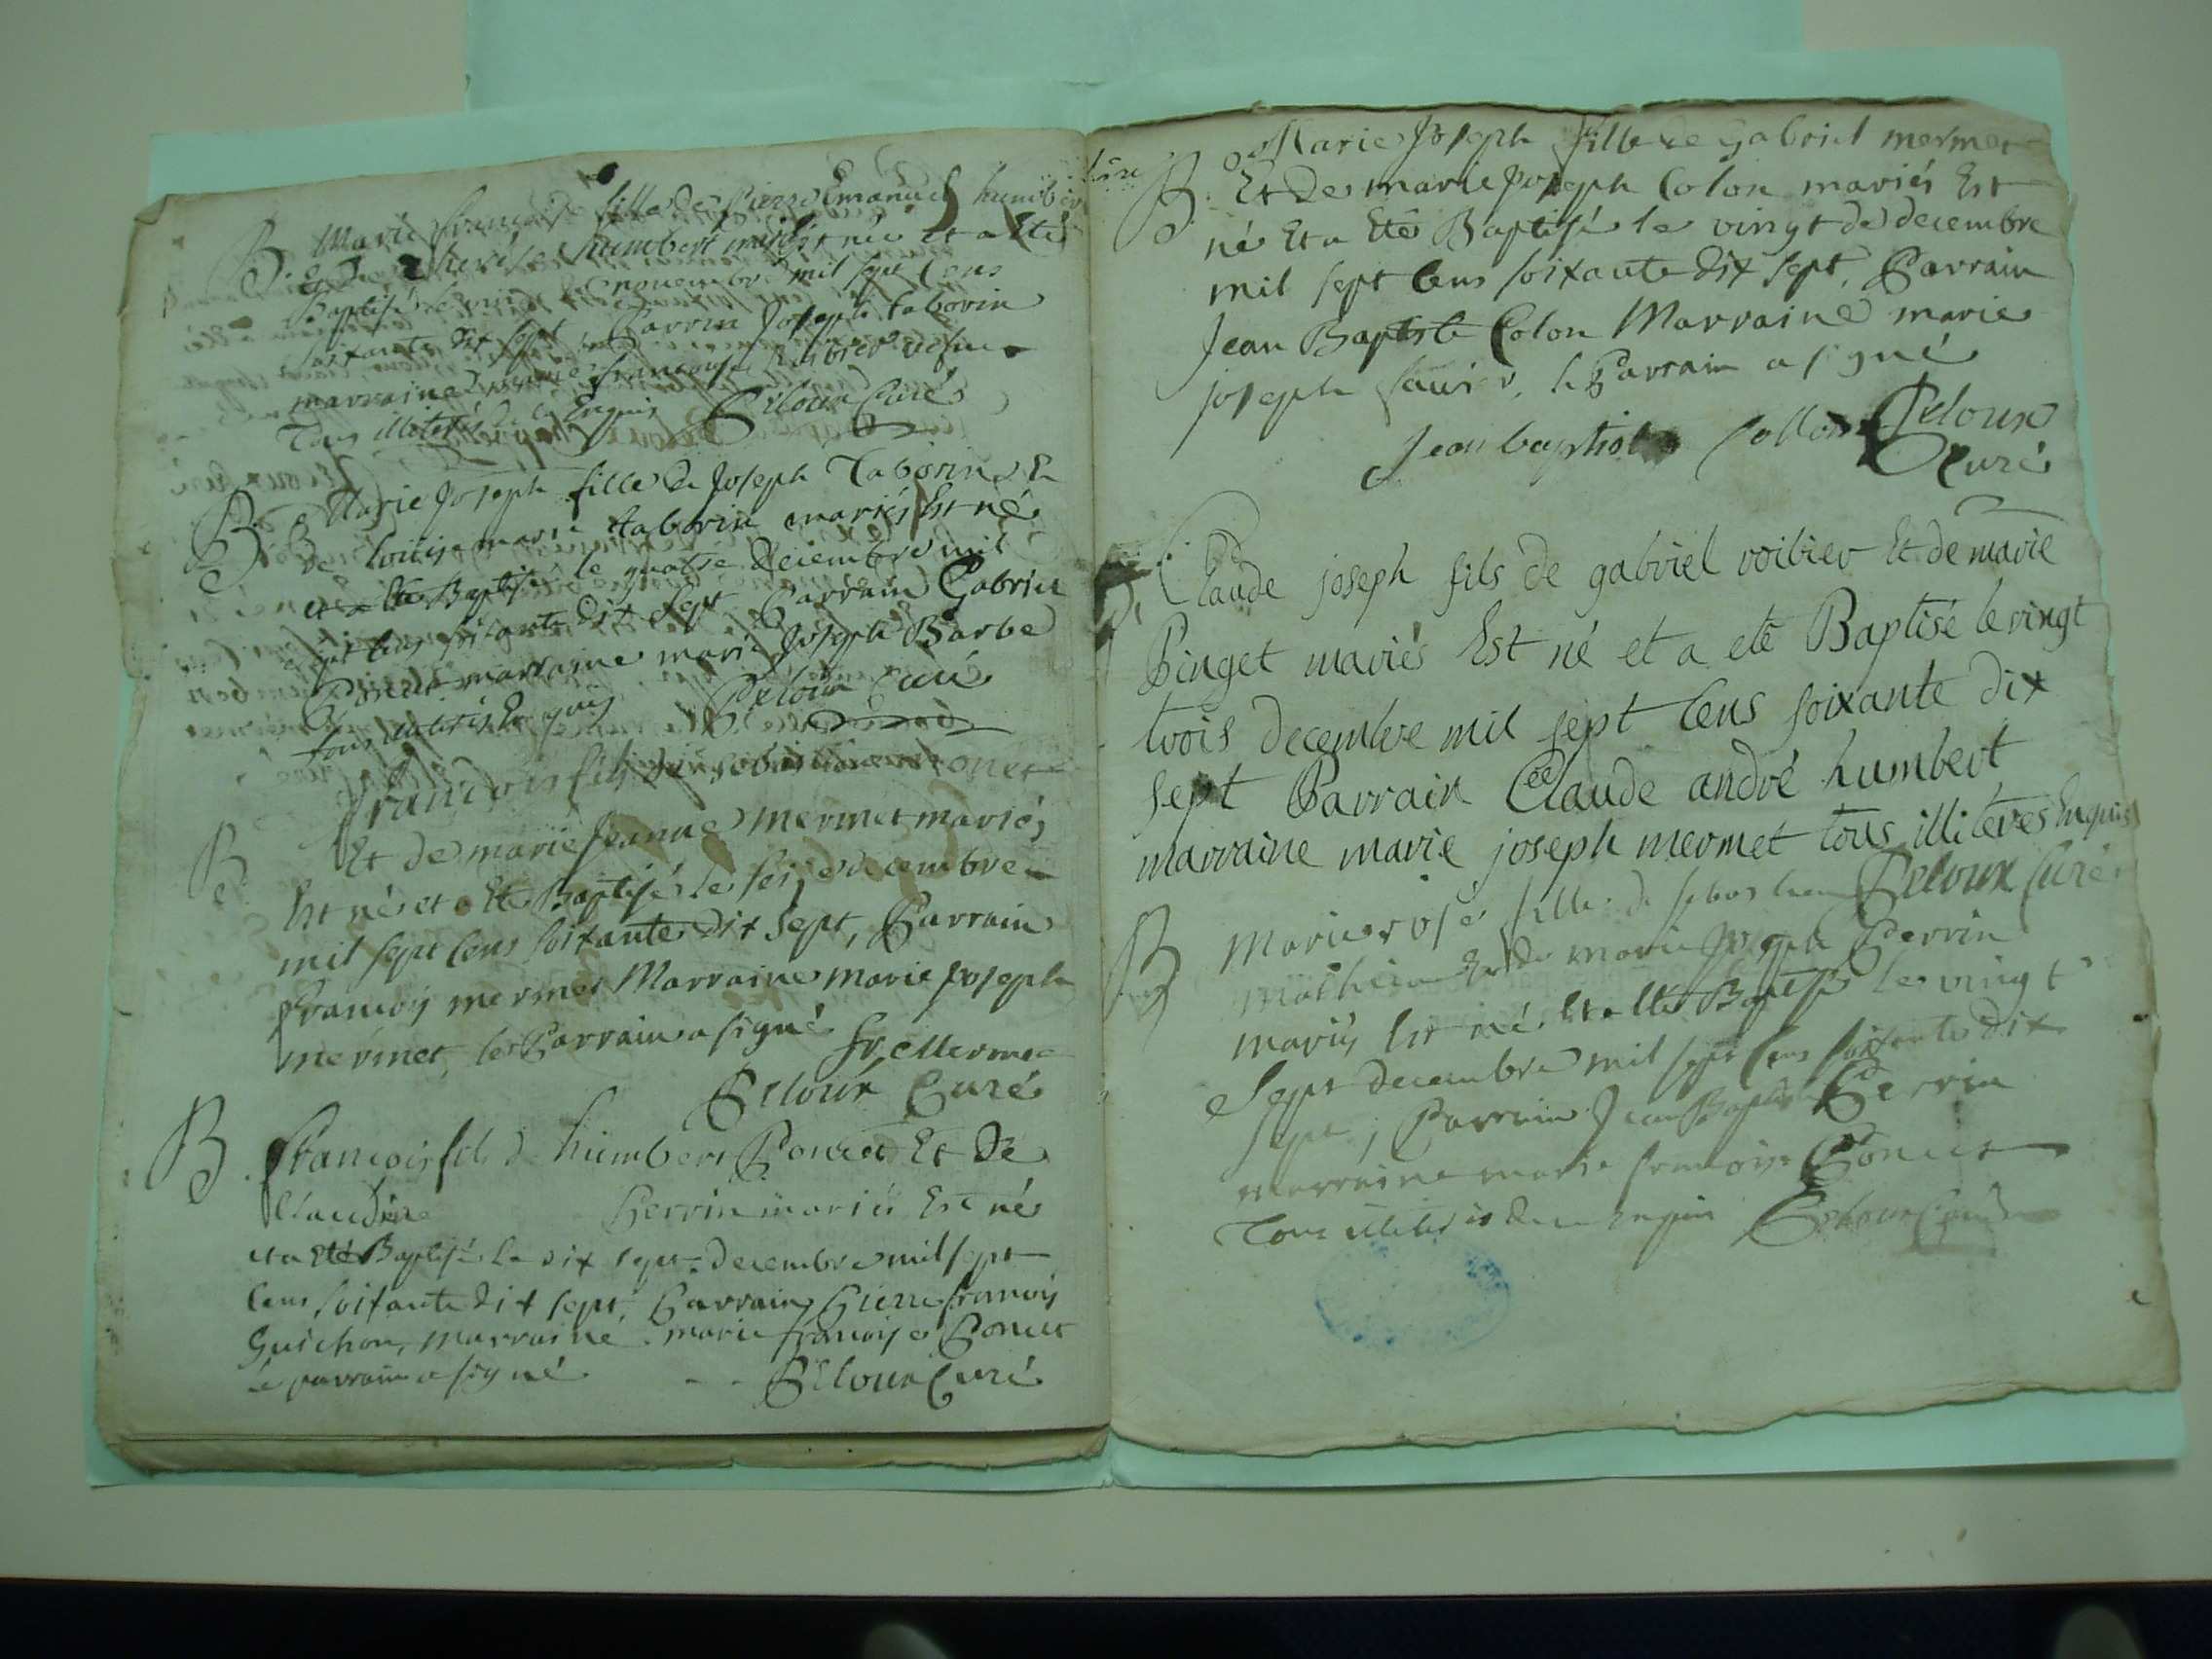 B. Marie françoise fille de Pierre Emanuel humber
et de therese humbert mariés née et a été
Baptisé le novembre mil sept cens
soixante dix sept, Parrin Joseph taborin
marraine marie françoise
Tous illiterés de ce Enquis Peloux Curé
B. Marie Joseph fille de Joseph Taborin Et
de louise marie taborin mariés Est né
et a été Baptisé le quatre decembre mil
sept cens soixante dix sept Parrain Gabriel
Poncet marraine marie Joseph Barbe
tous illiterés Enquis Peloux Curé
B. françois fils de sebastien Poncet
Et de marie Jeanne mermet mariés
Est né et a Eté Baptisé le seize decembre
mil sept cens soixante dix sept, Parrain
françois mermet Marraine marie joseph
mermet, le Parrain a signé
fr. Mermet
Peloux Curé
B. françois fils de humbert Poncet Et de
Claudine Perrin mariés Est né
et a Eté Baptisé le dix sept decembre mil sept
cens soixante dix sept, Parrain Pierre françois
Guichon, Marraine marie françoise Poncet
le parrain a signé Peloux Curé
B. Marie Joseph fille de Gabriel mermet
Et de marie joseph Colon mariés Est
né Et a Eté Baptisé le vingt de decembre
mil sept cens soixante dix sept, Parrain
Jean Baptiste Colon Marraine marie
joseph, le Parrain a signé
Jean baptiste Collon Peloux
Curé
B. Claude joseph fils de gabriel voibier Et de marie
Pinget mariés Est né et a eté Baptisé le vingt
trois decembre mil sept Cens soixante dix
sept Parrain Claude andré humbert
marraine marie joseph mermet tous illiterés Enquis
Peloux Curé
B Marie rose fille de sebastien
mathieu Et de marie Joseph Perrin
mariés Est né Et a Eté Baptisé le vingt
Sept decembre mil sept cens soixante dix
sept, Parrain Jean Baptiste Perrin
marraine marie françoise Poncet
Tous illiterés de ce enquis Peloux Curé